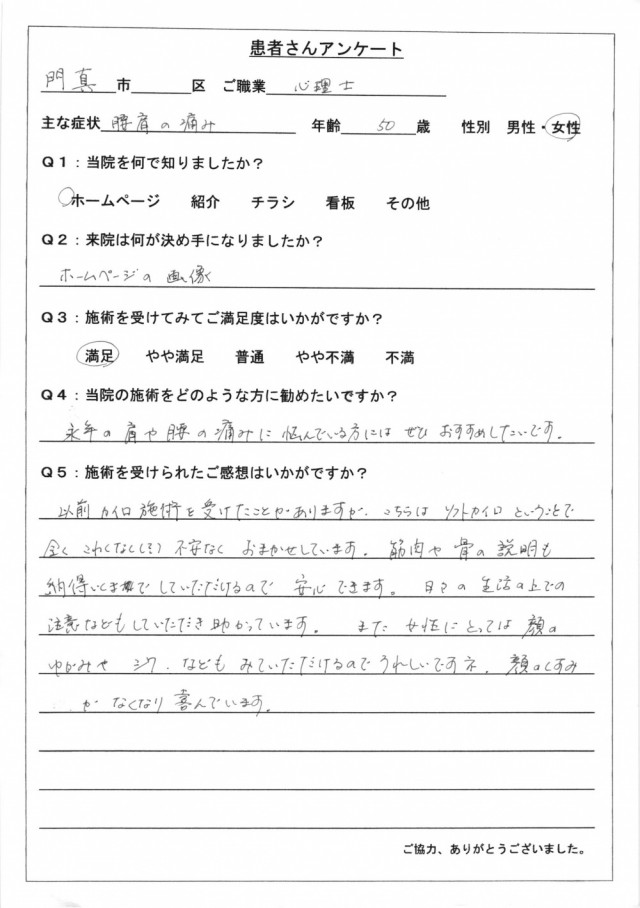 患者さんアンケート
門真市 区 ご職業 心理士
主な症状 腰肩の痛み 年齢 50 歳 性別 男性・女性
Q1:当院を何で知りましたか?
ホームページ 紹介 チラシ 看板 その他
Q2:来院は何が決め手になりましたか?
ホームページの画像
Q3:施術を受けてみてご満足度はいかがですか?
満足 やや満足 普通 やや不満 不満
Q4:当院の施術をどのような方に勧めたいですか?
永年の肩や腰の痛みに悩んでいる方にはぜひおすすめしたいです。
Q5:施術を受けられたご感想はいかがですか?
以前カイロ施術を受けたことがありますが、こちらはソフトカイロということで
全くこわくなく(?)不安なくおまかせしています。筋肉や骨の説明も
納得いくまでしていただけるので安心できます。日々の生活の上での
注意などもしていただき助かっています。また女性にとっては顔の
ゆがみやシワ、などもみていただけるのでうれしいですネ。顔のくすみ
がなくなり喜んでいます。
ご協力、ありがとうございました。